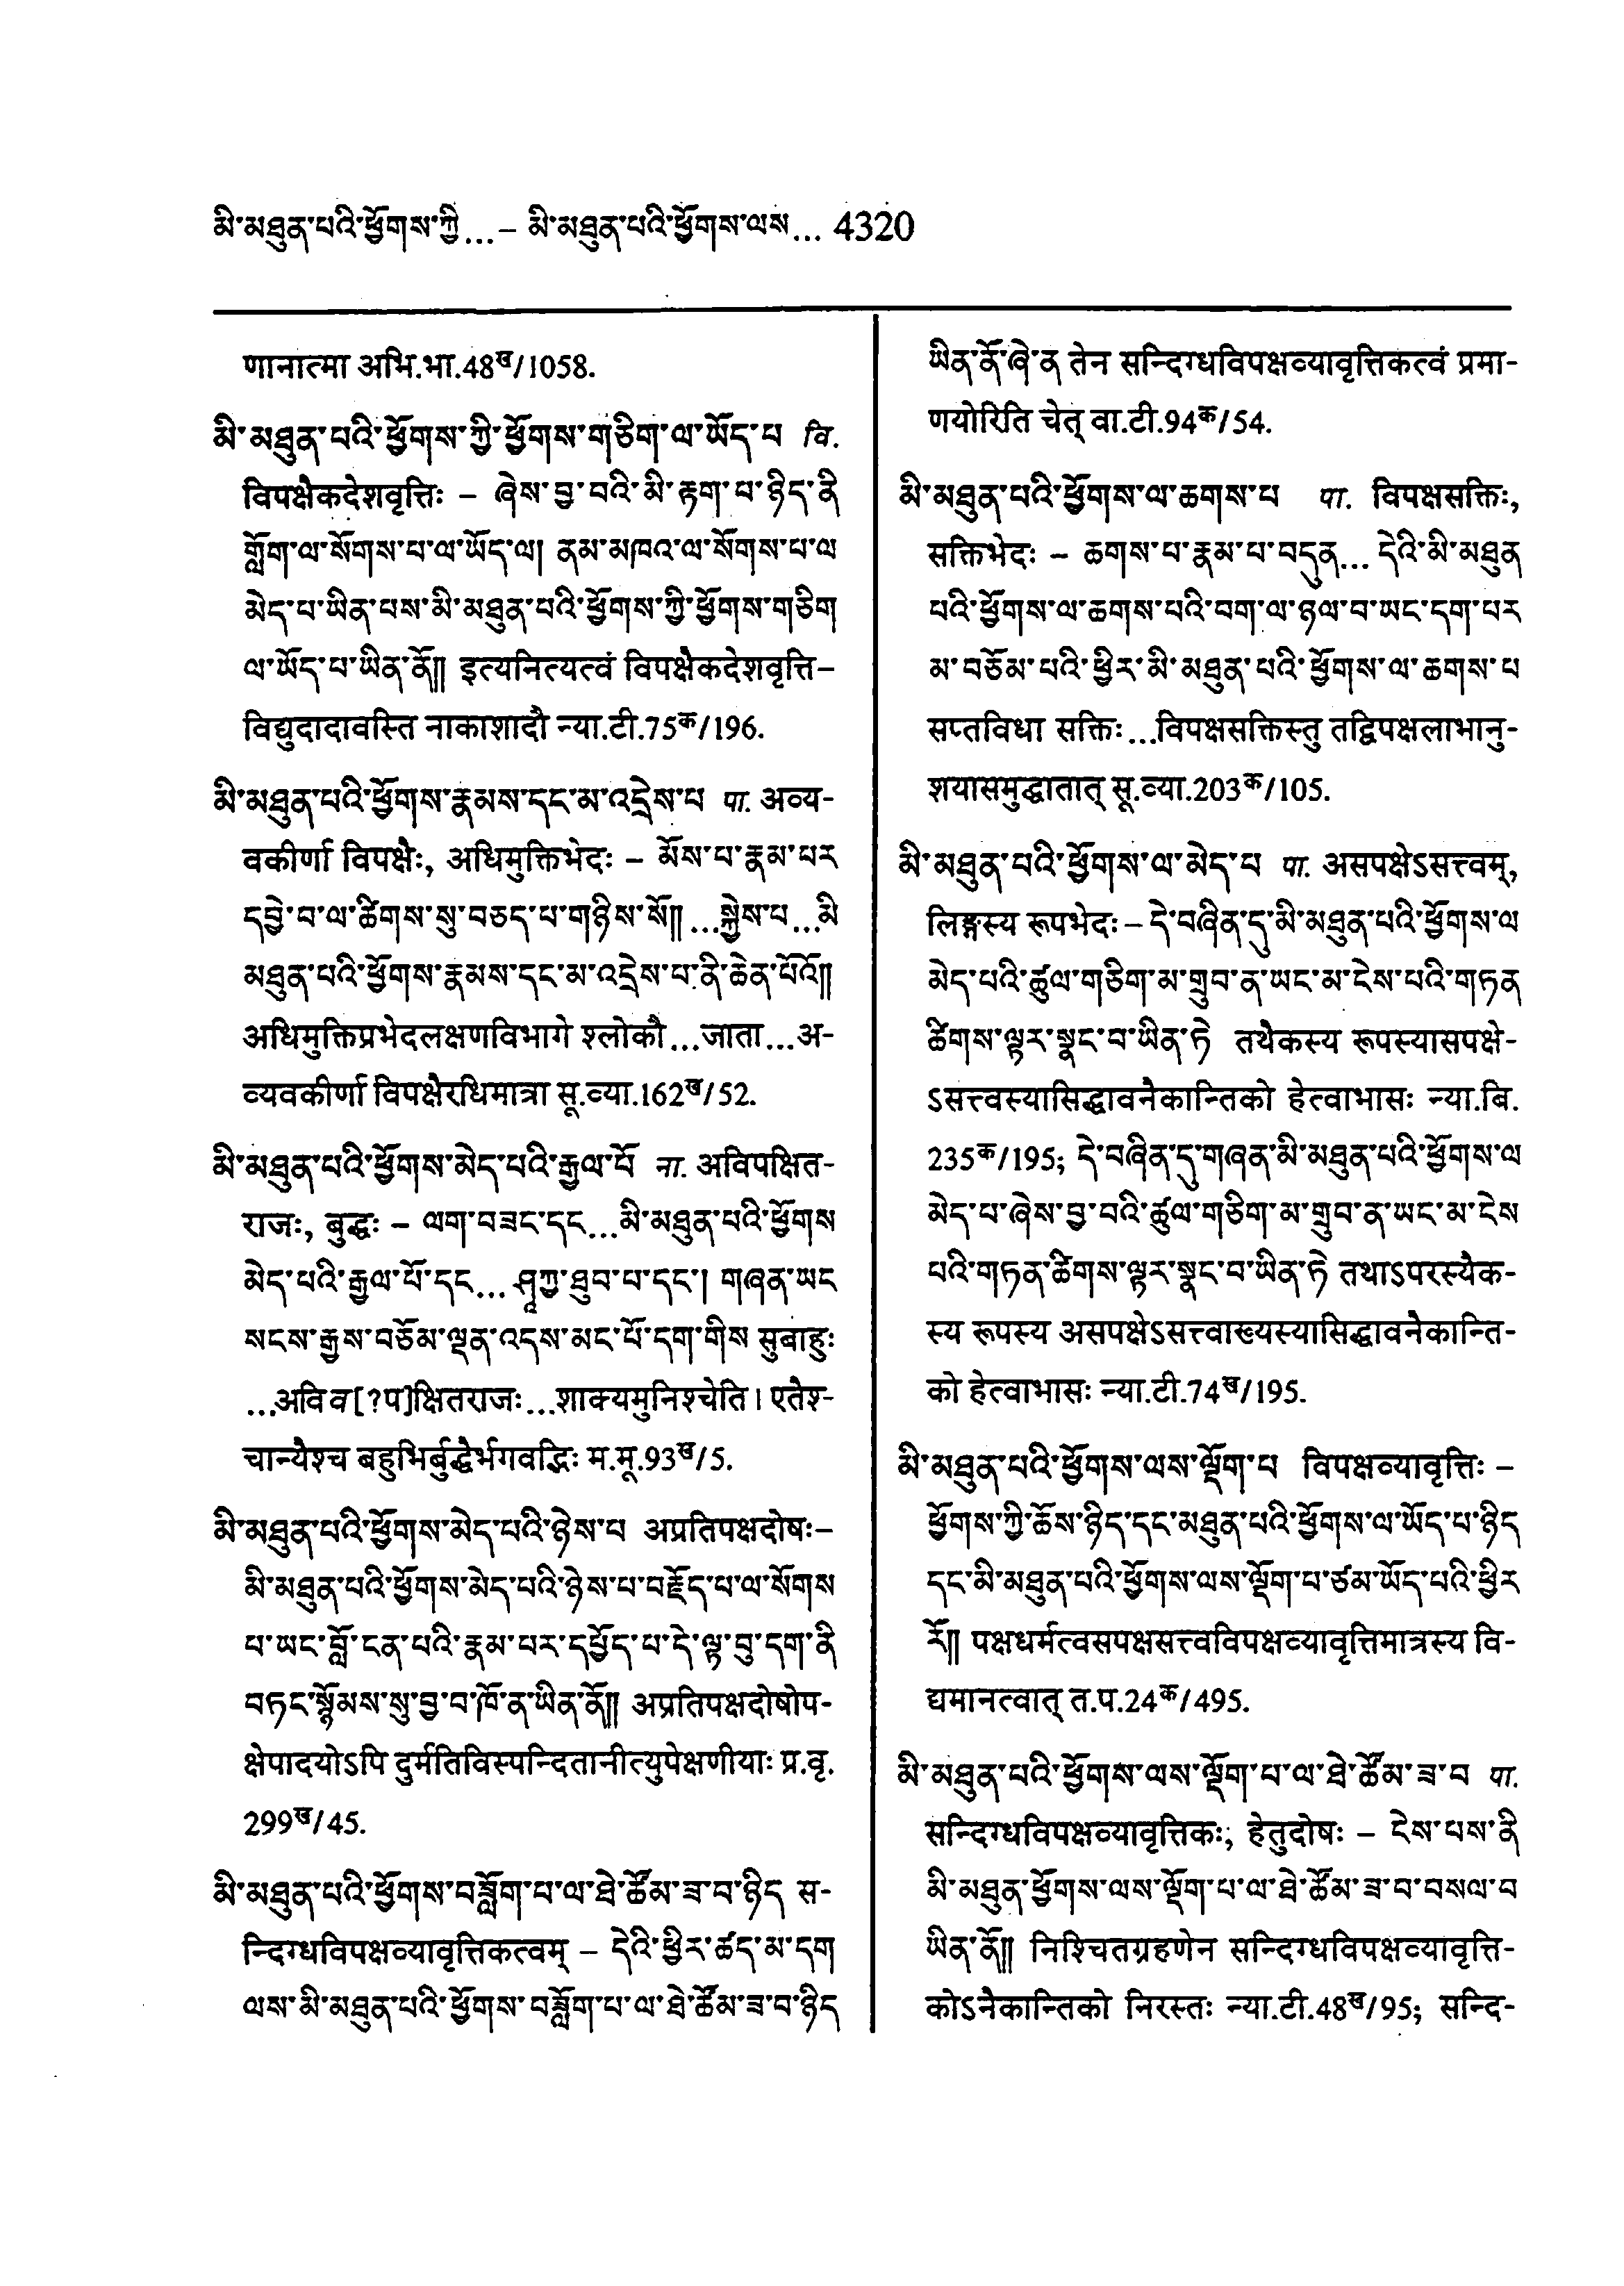 མི་མཐུན་པའི་ཕྱོགས་ཀྱི...– མི་མཐུན་པའི་ཕྱོགས་ལས... 4320
णानात्मा अभि.भा.48ख/1058.
མི་མཐུན་པའི་ཕྱོགས་ཀྱི་ཕྱོགས་གཅིག་ལ་ཡོད་པ वि.
विपक्षैकदेशवृत्तिः – ཞེས་བྱ་བའི་མི་རྟག་པ་ཉིད་ནི
གློག་ལ་སོགས་པ་ལ་ཡོད་ལ། ནམ་མཁའ་ལ་སོགས་པ་ལ
མེད་པ་ཡིན་པས་མི་མཐུན་པའི་ཕྱོགས་ཀྱི་ཕྱོགས་གཅིག
ལ་ཡོད་པ་ཡིན་ནོ།། इत्यनित्यत्वं विपक्षैकदेशवृत्ति–
विद्युदादावस्ति नाकाशादौ न्या.टी.75क/196.
མི་མཐུན་པའི་ཕྱོགས་རྣམས་དང་མ་འདྲེས་པ पा. अव्य-
वकीर्णा विपक्षैः, अधिमुक्तिभेदः – མོས་པ་རྣམ་པར
དབྱེ་བ་ལ་ཚིགས་སུ་བཅད་པ་གཉིས་སོ།། ...སྐྱེས་པ...མི
མཐུན་པའི་ཕྱོགས་རྣམས་དང་མ་འདྲེས་པ་ནི་ཆེན་པོའོ།།
अधिमुक्तिप्रभेदलक्षणविभागे श्लोकौ...जाता...अ-
व्यवकीर्णा विपक्षैरधिमात्रा सू.व्या.162ख/52.
མི་མཐུན་པའི་ཕྱོགས་མེད་པའི་རྒྱལ་པོ ना. अविपक्षित-
राजः, बुद्धः – ལག་བཟང་དང...མི་མཐུན་པའི་ཕྱོགས
མེད་པའི་རྒྱལ་པོ་དང... ཤཱཀྱ་ཐུབ་པ་དང་། གཞན་ཡང
སངས་རྒྱས་བཅོམ་ལྡན་འདས་མང་པོ་དག་གིས सुबाहुः
...अविव[?प]क्षितराजः...शाक्यमुनिश्चेति। एतैश्-
चान्यैश्च बहुभिर्बुद्धैर्भगवद्भिः म.मू.93ख/5.
མི་མཐུན་པའི་ཕྱོགས་མེད་པའི་ཉེས་པ अप्रतिपक्षदोषः–
མི་མཐུན་པའི་ཕྱོགས་མེད་པའི་ཉེས་པ་བརྗོད་པ་ལ་སོགས
པ་ཡང་བློ་ངན་པའི་རྣམ་པར་དཔྱོད་པ་དེ་ལྟ་བུ་དག་ནི
བཏང་སྙོམས་སུ་བྱ་བ་ཁོ་ན་ཡིན་ནོ།། अप्रतिपक्षदोषोप-
क्षेपादयोऽपि दुर्मतिविस्पन्दितानीत्युपेक्षणीयाः प्र.वृ.
299ख/45.
མི་མཐུན་པའི་ཕྱོགས་བཟློག་པ་ལ་ཐེ་ཚོམ་ཟ་བ་ཉིད स-
न्दिग्धविपक्षव्यावृत्तिकत्वम् – དེའི་ཕྱིར་ཚད་མ་དག
ལས་མི་མཐུན་པའི་ཕྱོགས་བཟློག་པ་ལ་ཐེ་ཚོམ་ཟ་བ་ཉིད
ཡིན་ནོ་ཞེ་ན तेन सन्दिग्धविपक्षव्यावृत्तिकत्वं प्रमा-
णयोरिति चेत् वा.टी.94क/54.
མི་མཐུན་པའི་ཕྱོགས་ལ་ཆགས་པ पा. विपक्षसक्तिः,
सक्तिभेदः – ཆགས་པ་རྣམ་པ་བདུན... དེའི་མི་མཐུན
པའི་ཕྱོགས་ལ་ཆགས་པའི་བག་ལ་ཉལ་བ་ཡང་དག་པར
མ་བཅོམ་པའི་ཕྱིར་མི་མཐུན་པའི་ཕྱོགས་ལ་ཆགས་པ
सप्तविधा सक्तिः...विपक्षसक्तिस्तु तद्विपक्षलाभानु-
शयासमुद्घातात् सू.व्या.203क/105.
མི་མཐུན་པའི་ཕྱོགས་ལ་མེད་པ पा. असपक्षेऽसत्त्वम्,
लिङ्गस्य रूपभेदः – དེ་བཞིན་དུ་མི་མཐུན་པའི་ཕྱོགས་ལ
མེད་པའི་ཚུལ་གཅིག་མ་གྲུབ་ན་ཡང་མ་ངེས་པའི་གཏན
ཚིགས་ལྟར་སྣང་བ་ཡིན་ཏེ तथैकस्य रूपस्यासपक्षे-
ऽसत्त्वस्यासिद्धावनैकान्तिको हेत्वाभासः न्या.बि.
235क/195; དེ་བཞིན་དུ་གཞན་མི་མཐུན་པའི་ཕྱོགས་ལ
མེད་པ་ཞེས་བྱ་བའི་ཚུལ་གཅིག་མ་གྲུབ་ན་ཡང་མ་ངེས
པའི་གཏན་ཚིགས་ལྟར་སྣང་བ་ཡིན་ཏེ तथाऽपरस्यैक-
स्य रूपस्य असपक्षेऽसत्त्वाख्यस्यासिद्धावनैकान्ति-
को हेत्वाभासः न्या.टी.74ख/195.
མི་མཐུན་པའི་ཕྱོགས་ལས་ལྡོག་པ विपक्षव्यावृत्तिः –
ཕྱོགས་ཀྱི་ཆོས་ཉིད་དང་མཐུན་པའི་ཕྱོགས་ལ་ཡོད་པ་ཉིད
དང་མི་མཐུན་པའི་ཕྱོགས་ལས་ལྡོག་པ་ཙམ་ཡོད་པའི་ཕྱིར
རོ།། पक्षधर्मत्वसपक्षसत्त्वविपक्षव्यावृत्तिमात्रस्य वि-
द्यमानत्वात् त.प.24क/495.
མི་མཐུན་པའི་ཕྱོགས་ལས་ལྡོག་པ་ལ་ཐེ་ཚོམ་ཟ་བ पा.
सन्दिग्धविपक्षव्यावृत्तिकः, हेतुदोषः – ངེས་པས་ནི
མི་མཐུན་ཕྱོགས་ལས་ལྡོག་པ་ལ་ཐེ་ཚོམ་ཟ་བ་བསལ་བ
ཡིན་ནོ།། निश्चितग्रहणेन सन्दिग्धविपक्षव्यावृत्ति-
कोऽनैकान्तिको निरस्तः न्या.टी.48ख/95; सन्दि-